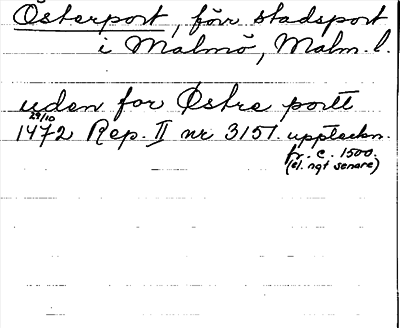 Österport, förr stadsport
i Malmö, Malm. l.
uden for Østre portt
29/10
1472 Rep. II nr 3157. uppteckn.
fr. c. 1500.
(el. ngt senare)